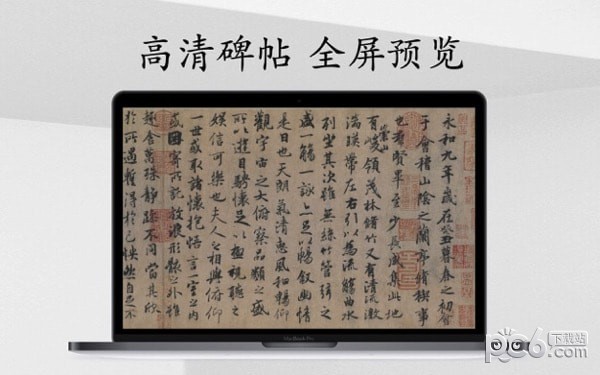 高清碑帖 全屏预览
永和九年歲在癸丑暮春之初會
于會稽山陰之蘭亭脩稧事
也羣賢畢至少長咸集此地
有崇山峻領茂林脩竹又有清流激
湍暎帶左右引以為流觴曲水
列坐其次雖無絲竹管弦之
盛一觴一詠亦足以暢敘幽情
是日也天朗氣清惠風和暢仰
觀宇宙之大俯察品類之盛
所以遊目騁懷足以極視聽之
娛信可樂也夫人之相與俯仰
一世或取諸懷抱悟言一室之內
或因寄所託放浪形骸之外雖
趣舍萬殊靜躁不同當其欣
於所遇暫得於己怏然自足不
MacBook Pro
pc6下载站
.com